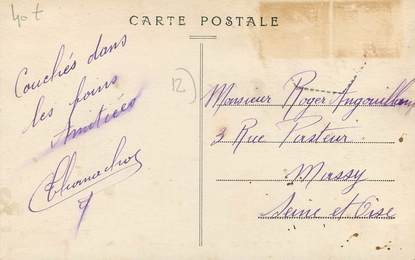 40 t
CARTE POSTALE
Couchés dans
les foins
Amitiés
12
Monsieur Roger
3 Rue Pasteur
Massy
Seine et Oise